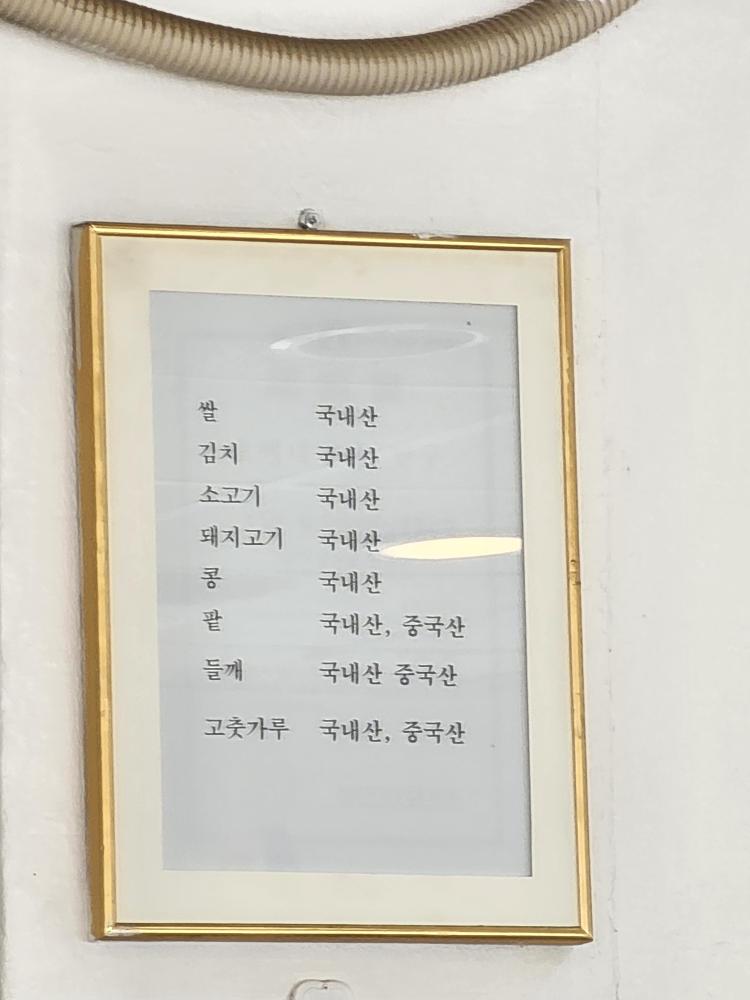 쌀 국내산
김치 국내산
소고기 국내산
돼지고기 국내산
콩 국내산
팥 국내산, 중국산
들깨 국내산 중국산
고춧가루 국내산, 중국산